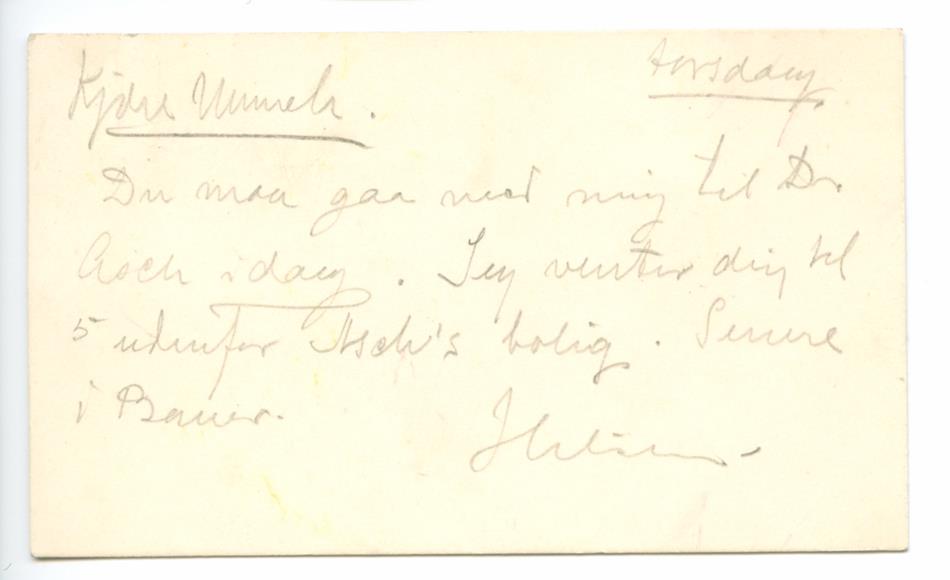 torsdag
Kjære Munch.
Du maa gaa med mig til Dr.
Asch idag. Jeg venter dig til
5 udenfor Asch's bolig. Senere
i Bauer.